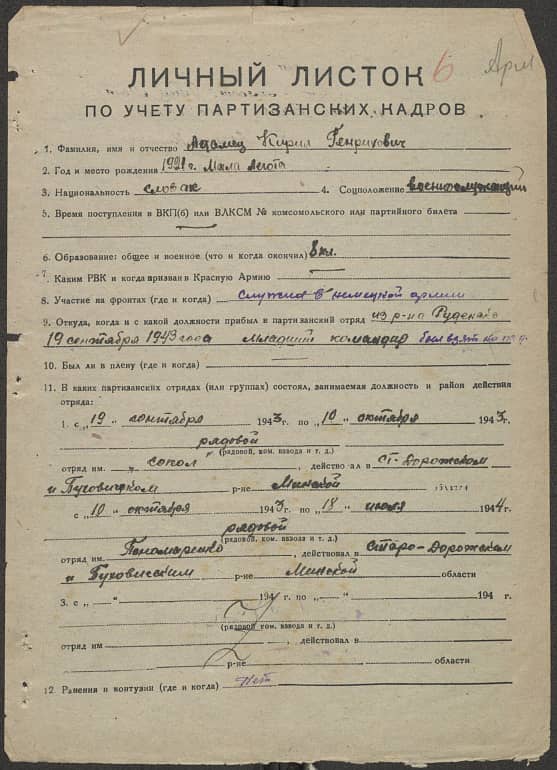 6
ЛИЧНЫЙ ЛИСТОК
ПО УЧЕТУ ПАРТИЗАНСКИХ КАДРОВ
1. Фамилия, имя и отчество Адамец Кирил Генрихович
2. Год и место рождения 1921 г. Мала Легота
3. Национальность словак 4. Соцположение военнослужащий
5. Время поступления в ВКП(б) или ВЛКСМ № комсомольского или партийного билета
6. Образование: общее и военное (что и когда окончил) 8 кл.
7. Каким РВК и когда призван в Красную Армию
8. Участие на фронтах (где и когда) Служил в немецкой армии
9. Откуда, когда и с какой должности прибыл в партизанский отряд из р-на Руденска
19 сентября 1943 года младший командир был взят
10. Был ли в плену (где и когда)
11. В каких партизанских отрядах (или группах) состоял, занимаемая должность и район действия
отряда:
1. с „19" сентября 1943 г. по „10" октября 1943 г.
рядовой
(рядовой, ком. взвода и т. д.)
отряд им. „сокол", действовал в Ст-Дорожском
и Пуховичском р-не Минской
с „10" октября 1943 г. по „18" июля 1944 г.
рядовой
(рядовой, ком. взвода и т. д.)
отряд им. Пономаренко, действовал в Старо-Дорожском
и Пуховисским р-не Минской области
3. с „ " 194 г. по „ " 194 г.
(рядовой, ком. взвода и т. д.)
отряд им , действовал в
р-не области
12. Ранения и контузии (где и когда) Нет